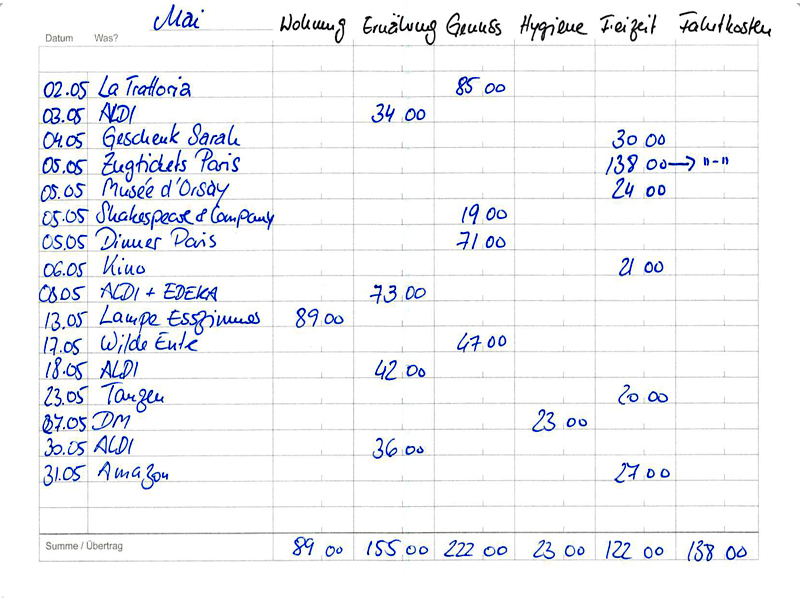 Mai
Datum Was? Wohnung Ernährung Genuss Hygiene Freizeit Fahrtkosten
02.05 La Trattoria 85 00
03.05 ALDI 34 00
04.05 Geschenk Sarah 30 00
05.05 Zugtickets Paris 138 00 → "-"
05.05 Musée d'Orsay 24 00
05.05 Shakespeare & Company 19 00
05.05 Dinner Paris 71 00
06.05 Kino 21 00
08.05 ALDI + EDEKA 73 00
13.05 Lampe Esszimmer 89 00
17.05 Wilde Ente 47 00
18.05 ALDI 42 00
23.05 Tanzen 20 00
27.05 DM 23 00
30.05 ALDI 36 00
31.05 Amazon 27 00
Summe / Übertrag 89 00 155 00 222 00 23 00 122 00 138 00